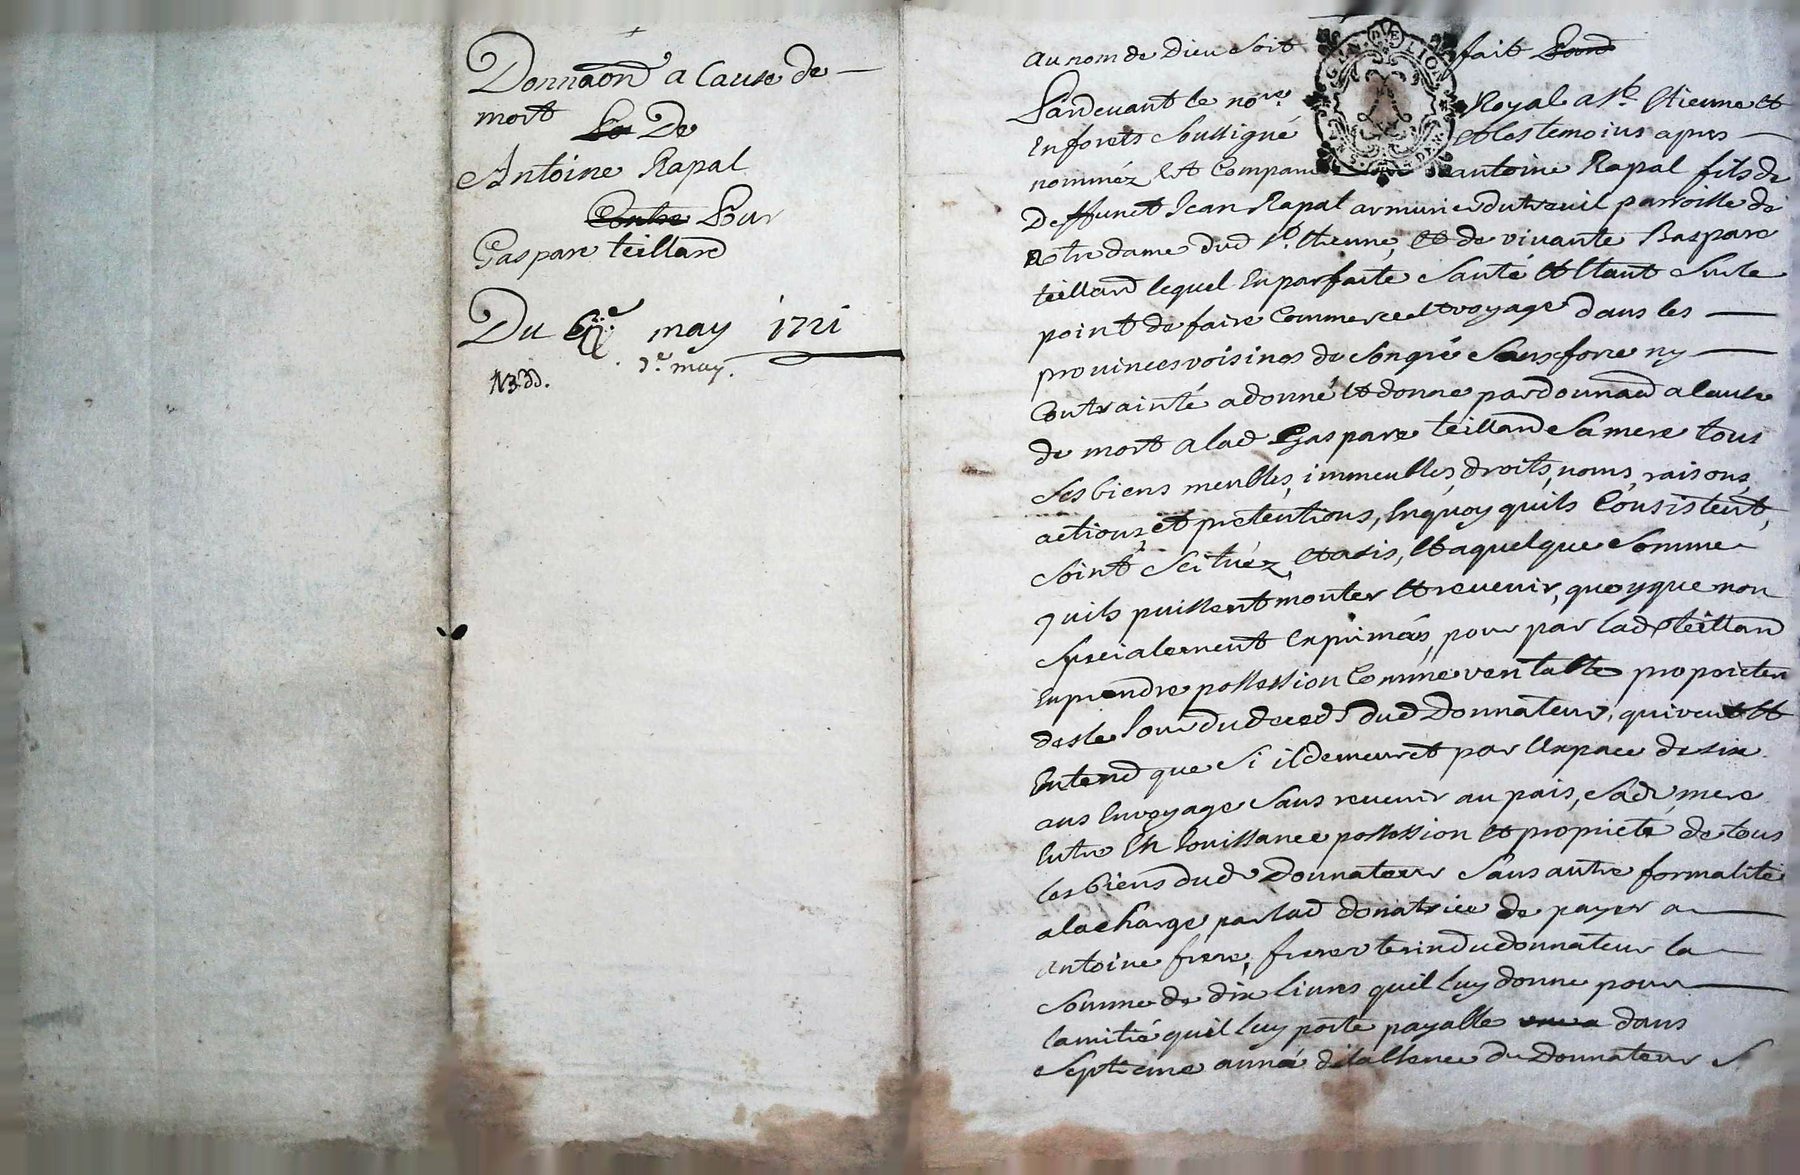 Donnaon a Cause de
mort De
Antoine Rapal
Contre Par
Gaspare teillard
Du may 1721
may.
Au nom de Dieu soit fait
Pardevant le nore Royal a St. Etienne et
En forets soussigné et les temoins apres
nomméz Est Comparu antoine Rapal fils de
Deffunct Jean Rapal armurier du treuil parroisse de
notre dame dud St. Etienne, et de vivante Gaspare
teillard lequel En parfaite santé et Etant sur le
point de faire Commerce et voyage dans les
provinces voisines de son gré sans force ny
Contrainté a donné et donne par donnaon a Cause
de mort a lad Gaspare teillard sa mere tous
ses biens meubles, immeubles, droits, noms, raisons,
actions, et pretentions, En quoy quils Consistent,
soint scituéz, et asis, Et a quelque somme
quils puissent monter Et revenir, quoyque non
specialement Exprimées, pour par lad teillard
En prendre possession Comme veritable
des le Jour du deceds dud Donnateur, qui veut Et
Entend que si il demeuret par l'Expace de six
ans En voyage sans revenir au pais, sad. mere
Entre En Jouissance possession et proprieté de tous
les biens dud Donnateur sans autre formalité
a la charge par lad donatrice de payer a
antoine frere, frere du donnateur la
somme de dix livres quil luy donne pour
lamitié quil luy porte payable dans
Septieme anné de labsence du Donnateur